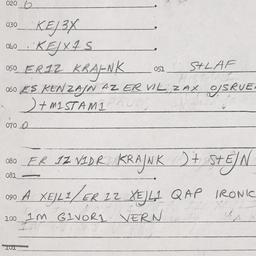 020 6
030 KEJ3X
040 . KEJX1S
050 ER1Z KRAJNK 051 S+LAF
060 ES KENZAJN AZ ER VIL ZAX OJSRUE
)+M1STAM1
070 0
080 ER 1Z V1DR KRAJNK )+ S+EJN
081
090 A XEJL1/ER 1Z XEJL1 QAP IRONIC
100 1M G1VOR1 VERN
101